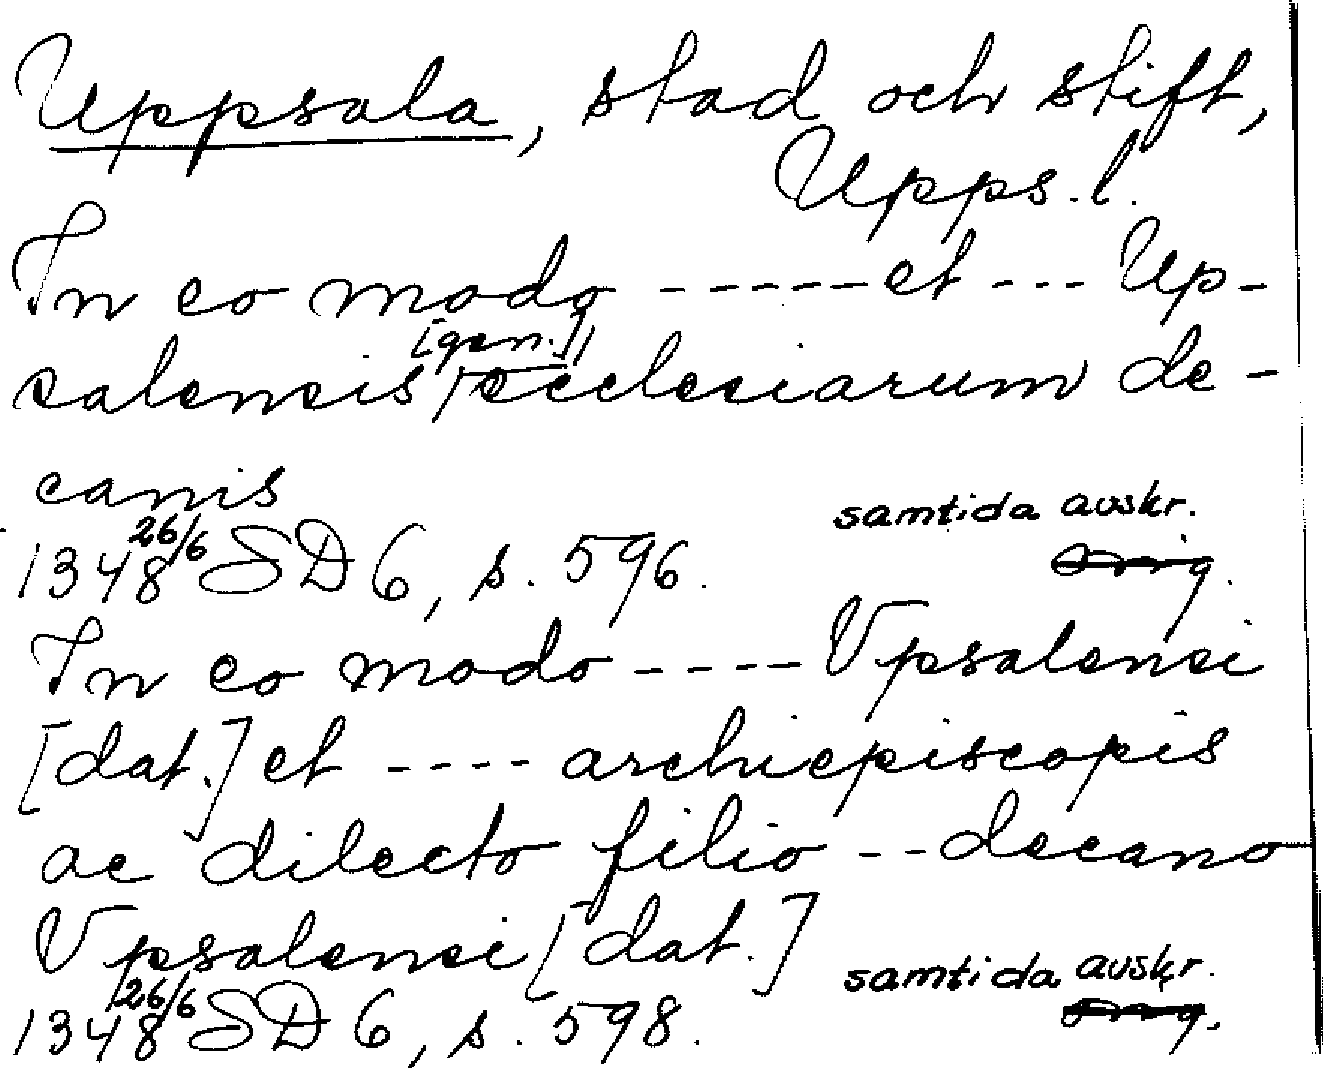 Uppsala, stad och stift,
Upps.l.
In eo modo ----- et --- Up-
salensis [gen.] ecclesiarum de-
canis
samtida avskr.
1348 26/6 SD 6, s. 596. Orig.
In eo modo ---- Vpsalensi
[dat.] et ---- archiepiscopis
ac dilecto filio -- decano
Vpsalensi [dat.]
samtida avskr.
1348 26/6 SD 6, s. 598. Orig.